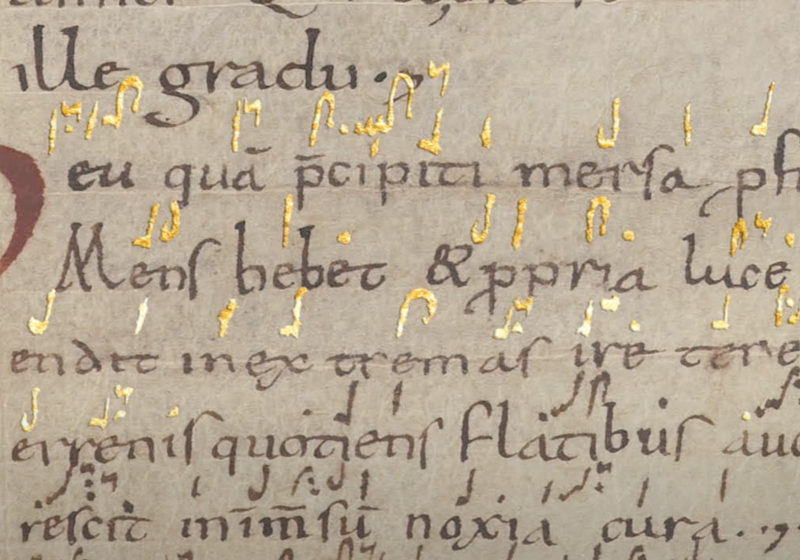 ille gradu.
eu quā p̄cipiti mersa
Mens hebet & ppria luce
endit in extremas ire tene
errenis quotiens flatibus auc
rescit in īm̄sū noxia cura.